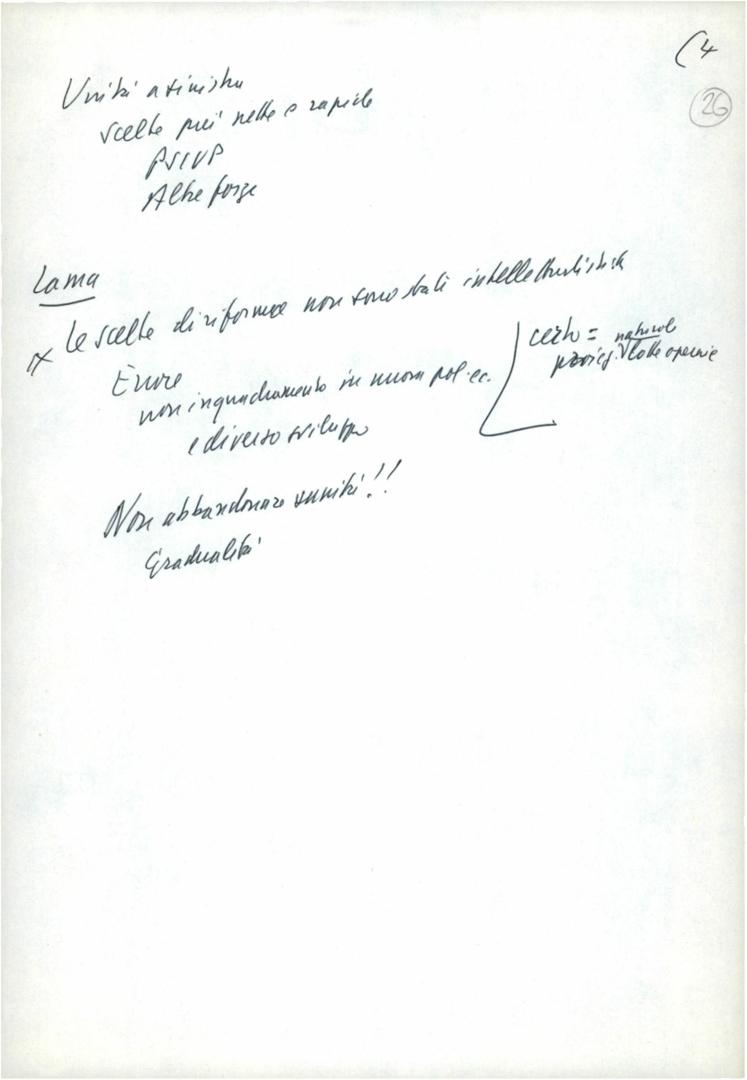 (4
26
Unità a sinistra
scelte più nette e rapide
PSIUP
Altre forze
Lama
x Le scelte di riforme non sono stati intellettualistich
certo = natural
prosieg. lotte operaie
Errore
non inquadramento in nuova pol. ec.
e diverso sviluppo
Non abbandonare unità!!
Gradualità